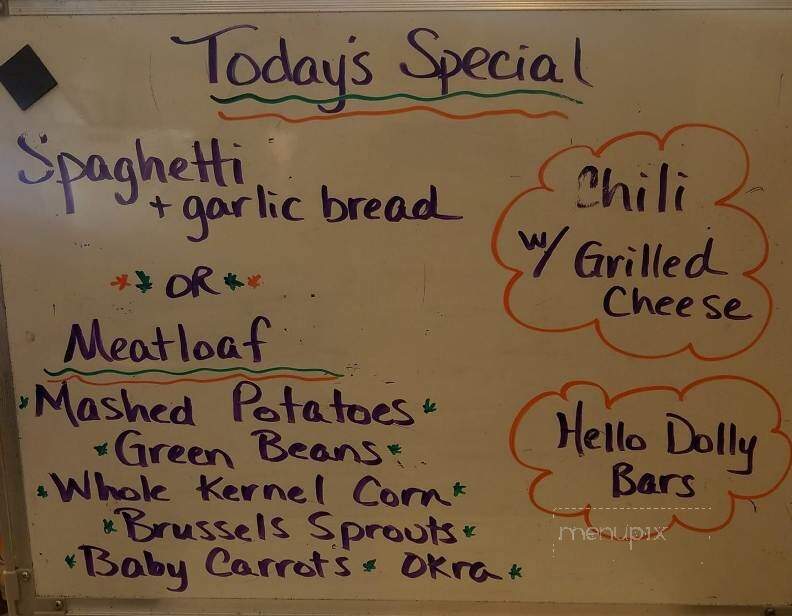 Today's Special
Spaghetti
+ garlic bread
** OR **
Meatloaf
*Mashed Potatoes*
*Green Beans*
*Whole Kernel Corn*
*Brussels Sprouts*
*Baby Carrots * Okra *
Chili
w/ Grilled
Cheese
Hello Dolly
Bars
menupix